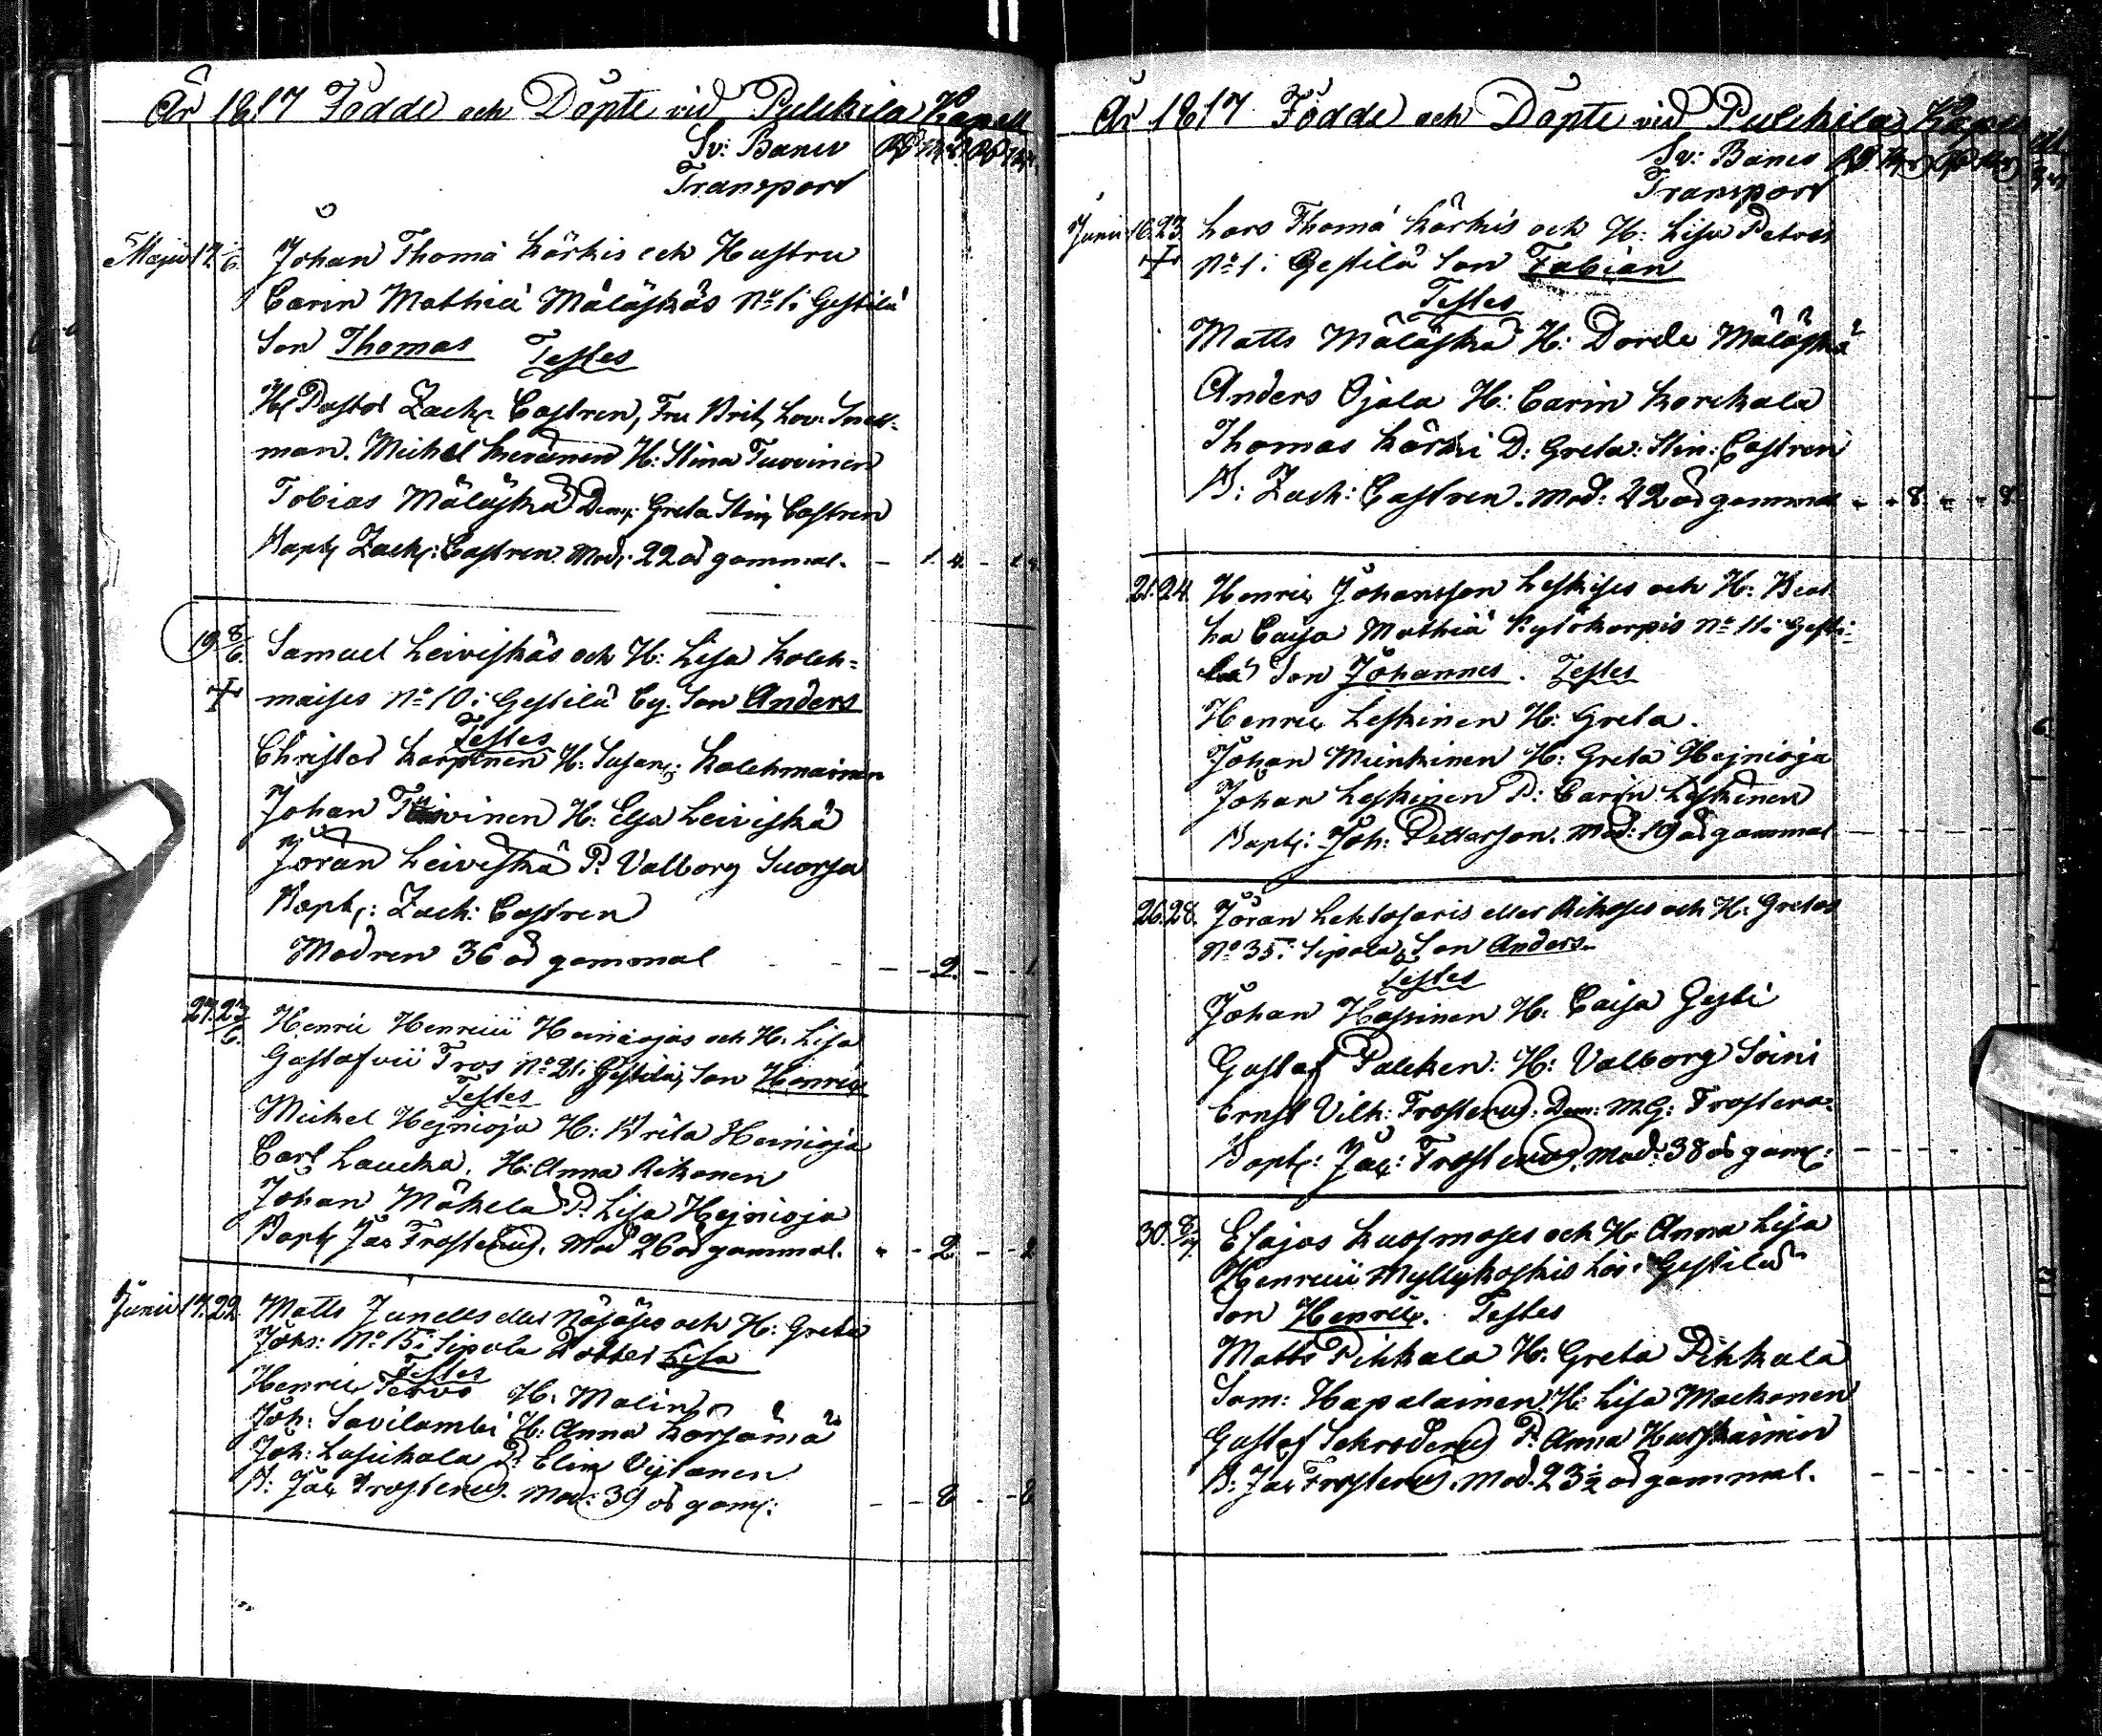 År 1817 Födde och Döpte vid Pulckila Kapell
Sv: Banco
Transport
Majus 12. 6. Johan Thomä Kärkis och Hustru
Carin Mathiä Mäläskäs No 1. Gestilä
Son Thomas Testes
H: Pastor Zach: Castren, Fru Brit. Lov: Snell-
man. Michel Keränen H: Stina Turvinen
Tobias Mäläskä Dem: Greta Stin Castren
Bapt: Zach: Castren. Mod: 22 år gammal. - 1. 4. -
19 8/6. Samuel Leiviskäs och H: Lisa Koleh=
maises No 10: Gestilä By. Son Anders
Testes
Christer Karpinen H: Susan: Kolehmainen
Johan Toivinen H: Elsa Leiviskä
Jöran Leiviskä P. Valborg Suorsa
Bapt: Zach: Castren
Modren 36 år gammal - - 2. - - 1.
27. 23/6. Henric Henrici Heinojas och H: Lisa
Gustafvii Tros No 21: Gestilä, Son Henric
Testes
Michel Hejnioja H: Brita Heinioja
Carl Laucka. H: Anna Rikonen
Johan Mäkelä P. Lisa Hejnioja
Bapt: Jac Frosterus. Mod 26 år gammal. - - 2 - - 2
Junii 17. 22. Matts Junells eller Näsäses och H: Greta
Johs: No 15: Sipola Dotter Lisa
Testes
Henric Tervo H: Malin
Joh: Savilambi H: Anna Kärsämä
Joh: Lasuikala P. Elin Vijlanen
B: Jac Frosterus. Mod: 39 år gam: - - 8 - - 8
År 1817. Födde och Döpte vid Pulckila Kapell
Sv: Banco
Transport
Junii 16. 23. Lars Thomä Kärkis och H: Lisa Petri
No 1: Gestilä Son Fabian
Testes
Matts Mäläskä H: Dorde Mäläskä
Anders Ojala H: Carin Korckala
Thomas Kärki D: Greta: Stin: Castren
B: Zach: Castren. Mod: 42 år gammal - - 8. - - 8.
21. 24. Henric Johansson Leskises och H: Beat
ha Caisa Mathiä Kytökorpis No 11: Gesti-
lä Son Johannes. Testes
Henric Leskinen H: Greta.
Johan Muinkinen H: Greta Hejnioja
Johan Leskinen P: Carin Leskinen
Bapt: Joh: Petterson. Mod: 19 år gammal
26. 28. Jöran Lehtosaris eller Rikoses och H: Gretas
No 35: Sipola, Son Anders.
Testes
Johan Hassinen H: Caisa Gesti
Gustaf Palcken: H: Valborg Soini
Ernst Vilh: Frosterus: Dem: M.G: Frostera.
Bapt: Jac: Frosterus. Mod: 38 år gam:
30. 8/7 Esajas Kuosmases och H: Anna Lisa
Henricii Myllykoskis Lös: Gestilä
Son Henric. Testes
Matts Pihkala H: Greta Pihkala
Sam: Hapalainen H: Lisa Mackonen
Gustaf Schroderus P. Anna Huuskainen
B: Jac Frosterus. Mod. 23 1/2 år gammal.